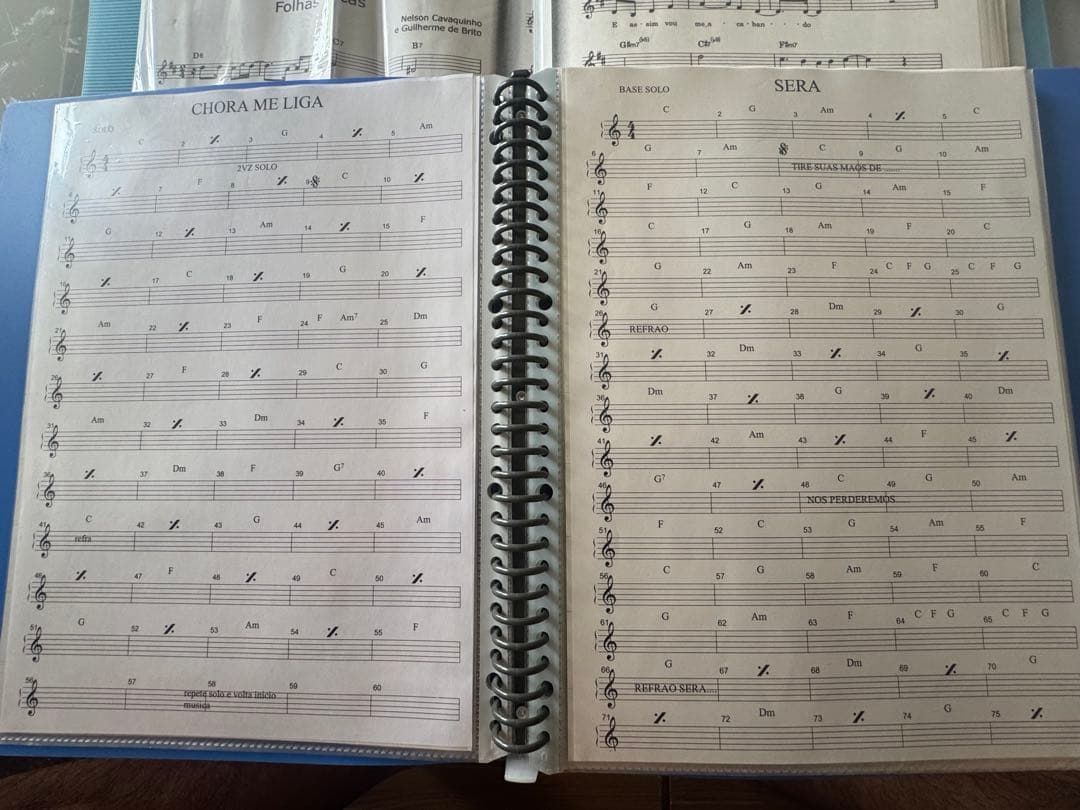 Folhas
cas
Nelson Cavaquinho
e Guilherme de Brito
D6
C7
B7
E as-sim vou me a - ca - ban - - do
G#m7(b5)
C#7(b9)
F#m7
CHORA ME LIGA
SOLO
C 2 3 G 4 5 Am
2VZ SOLO
6 7 F 8 9 C 10
11 G 12 13 Am 14 15 F
16 17 C 18 19 G 20
21 Am 22 23 F 24 F Am7 25 Dm
26 27 F 28 29 C 30 G
31 Am 32 33 Dm 34 35 F
36 37 Dm 38 F 39 G7 40
41 C 42 43 G 44 45 Am
refra
46 47 F 48 49 C 50
51 G 52 53 Am 54 55 F
56 57 58 59 60
repete solo e volta inicio
musica
BASE SOLO
SERA
C 2 G 3 Am 4 5 C
6 G 7 Am C 9 G 10 Am
TIRE SUAS MAOS DE .......
11 F 12 C 13 G 14 Am 15 F
16 C 17 G 18 Am 19 F 20 C
21 G 22 Am 23 F 24 C F G 25 C F G
26 G 27 28 Dm 29 30 G
REFRAO
31 32 Dm 33 34 G 35
36 Dm 37 38 G 39 40 Dm
41 42 Am 43 44 F 45
46 G7 47 48 C 49 G 50 Am
NOS PERDEREMOS
51 F 52 C 53 G 54 Am 55 F
56 C 57 G 58 Am 59 F 60 C
61 G 62 Am 63 F 64 C F G 65 C F G
66 G 67 68 Dm 69 70 G
REFRAO SERA....
71 72 Dm 73 74 G 75